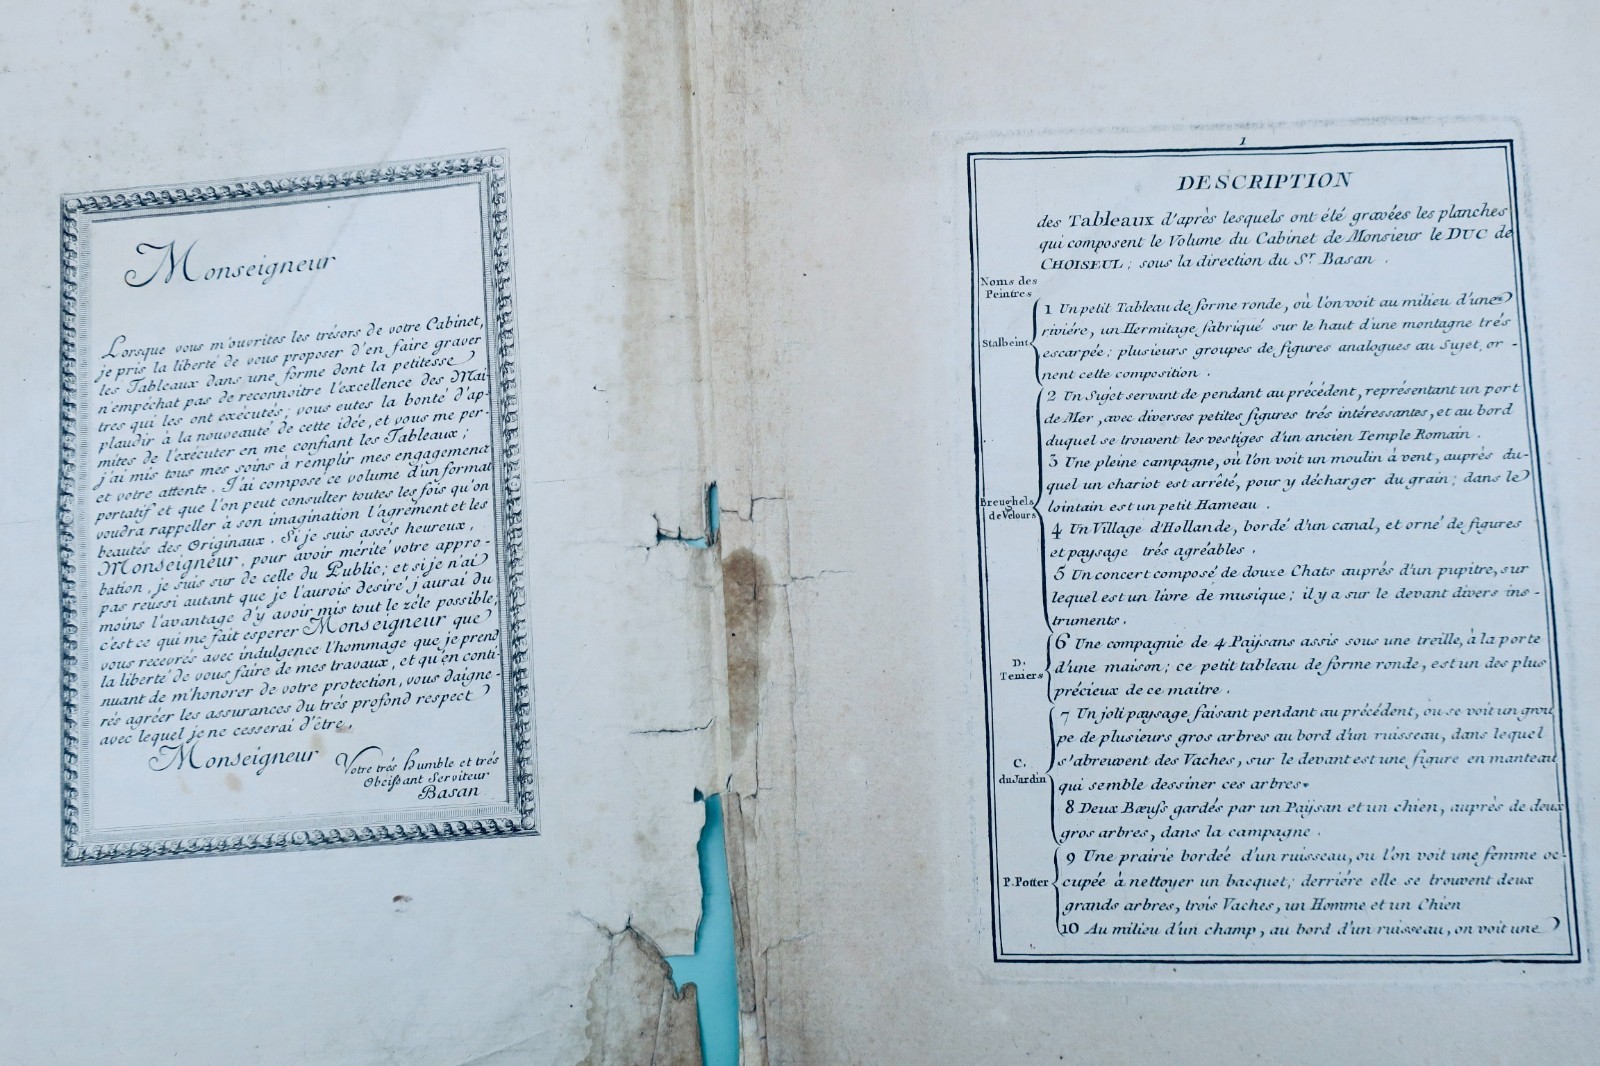 Monseigneur
Lorsque vous m'ouvrites les trésors de votre Cabinet,
je pris la liberté de vous proposer d'en faire graver
les Tableaux dans une forme dont la petitesse
n'empéchat pas de reconnoitre l'excellence des Mai-
tres qui les ont exécutés; vous eutes la bonté d'ap-
plaudir à la nouveauté de cette idée, et vous me per-
mites de l'exécuter en me confiant les Tableaux;
j'ai mis tous mes soins à remplir mes engagemens
et votre attente. J'ai composé ce volume d'un format
portatif et que l'on peut consulter toutes les fois qu'on
voudra rappeller à son imagination l'agrément et les
beautés des Originaux. Si je suis assés heureux,
Monseigneur, pour avoir mérité votre appro-
bation, je suis sur de celle du Public; et si je n'ai
pas réussi autant que je l'aurois desiré j'aurai du
moins l'avantage d'y avoir mis tout le zéle possible,
c'est ce qui me fait esperer Monseigneur que
vous recevrés avec indulgence l'hommage que je prend
la liberté de vous faire de mes travaux, et qu'en conti-
nuant de m'honorer de votre protection, vous daigne-
rés agréer les assurances du trés profond respect
avec lequel je ne cesserai d'être,
Monseigneur
Votre trés humble et trés
Obéissant Serviteur
Basan
1
DESCRIPTION
des Tableaux d'après lesquels ont été gravées les planches
qui composent le Volume du Cabinet de Monsieur le DUC de
CHOISEUL; sous la direction du Sr. Basan.
Noms des
Peintres
Stalbeint
1 Un petit Tableau de forme ronde, où l'on voit au milieu d'une
riviére, un Hermitage fabriqué sur le haut d'une montagne trés
escarpée; plusieurs groupes de figures analogues au Sujet, or-
nent cette composition.
Breughels
de Velours
2 Un Sujet servant de pendant au précédent, représentant un port
de Mer, avec diverses petites figures trés intéressantes, et au bord
duquel se trouvent les vestiges d'un ancien Temple Romain.
3 Une pleine campagne, où l'on voit un moulin à vent, auprés du-
quel un chariot est arrété, pour y décharger du grain; dans le
lointain est un petit Hameau.
4 Un Village d'Hollande, bordé d'un canal, et orné de figures
et paysage trés agréables.
5 Un concert composé de douze Chats auprés d'un pupitre, sur
lequel est un livre de musique; il y a sur le devant divers ins-
truments.
D.
Teniers
6 Une compagnie de 4 Païsans assis sous une treille, à la porte
d'une maison; ce petit tableau de forme ronde, est un des plus
précieux de ce maitre.
C.
du Jardin
7 Un joli paysage faisant pendant au précédent, ou se voit un grou
pe de plusieurs gros arbres au bord d'un ruisseau, dans lequel
s'abreuvent des Vaches, sur le devant est une figure en manteau
qui semble dessiner ces arbres.
8 Deux Bœufs gardés par un Païsan et un chien, auprés de deux
gros arbres, dans la campagne.
P. Potter
9 Une prairie bordée d'un ruisseau, ou l'on voit une femme oc-
cupée à nettoyer un bacquet; derriére elle se trouvent deux
grands arbres, trois Vaches, un Homme et un Chien
10 Au milieu d'un champ, au bord d'un ruisseau, on voit une